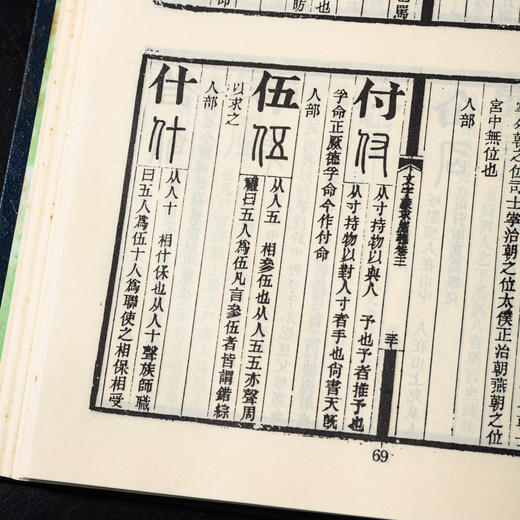 外朝之位司士掌治朝之位太僕正治朝燕朝之位
宮中無位也
人部
文字蒙求廣義卷三
付
从寸持物以與人 予也予者推予也
从寸持物以對人寸者手也尙書天旣
孚命正厥德孚命今作付命
人部
伍
从人五 相參伍也从人五五亦聲周
禮曰五人爲伍凡言參伍者皆謂錯綜
以求之
人部
什
从人十 相什保也从人十聲族師職
曰五人爲伍十人爲聯使之相保相受
69